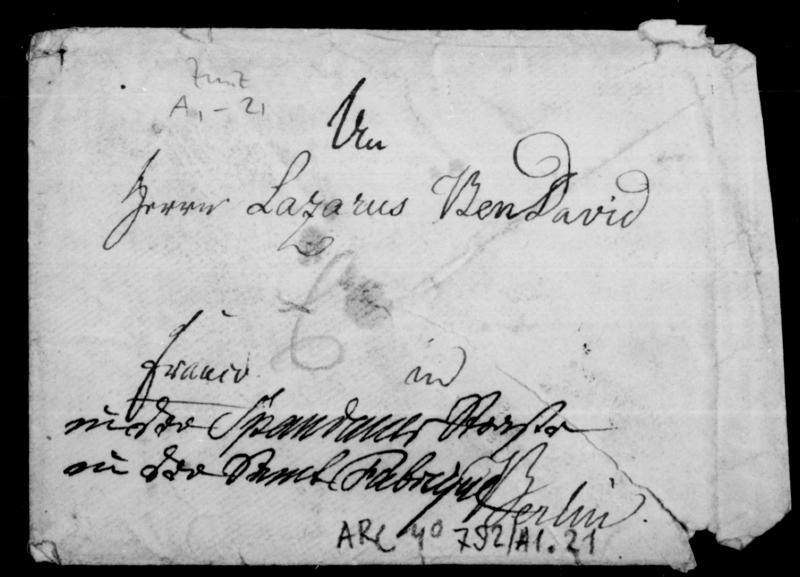 Zunz
A1-21
An
Herrn Lazarus BenDavid
Franco in
in der Spandauer Strasse
in der Samt Fabrique
Berlin
ARC 4° 792/A1.21